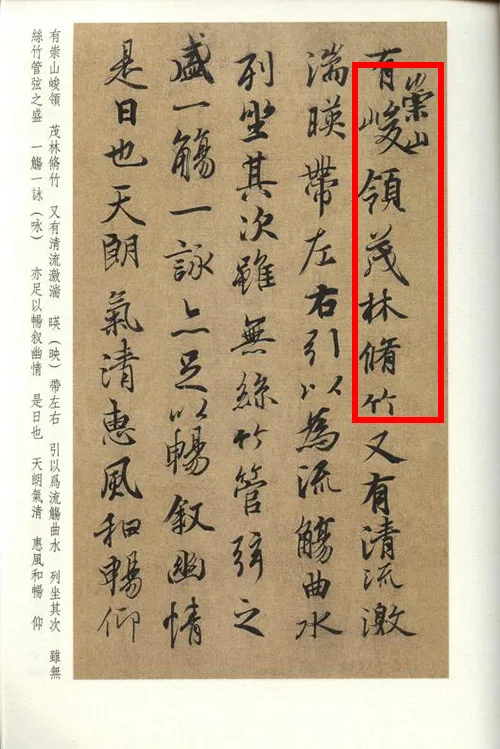 有崇山峻領茂林脩竹又有清流激
湍暎帶左右引以為流觴曲水
列坐其次雖無絲竹管弦之
盛一觴一詠亦足以暢叙幽情
是日也天朗氣清惠風和暢仰
有崇山峻領 茂林脩竹 又有清流激湍 暎（映）帶左右 引以爲流觴曲水 列坐其次 雖無
絲竹管弦之盛 一觴一詠（咏） 亦足以暢叙幽情 是日也 天朗氣清 惠風和暢 仰